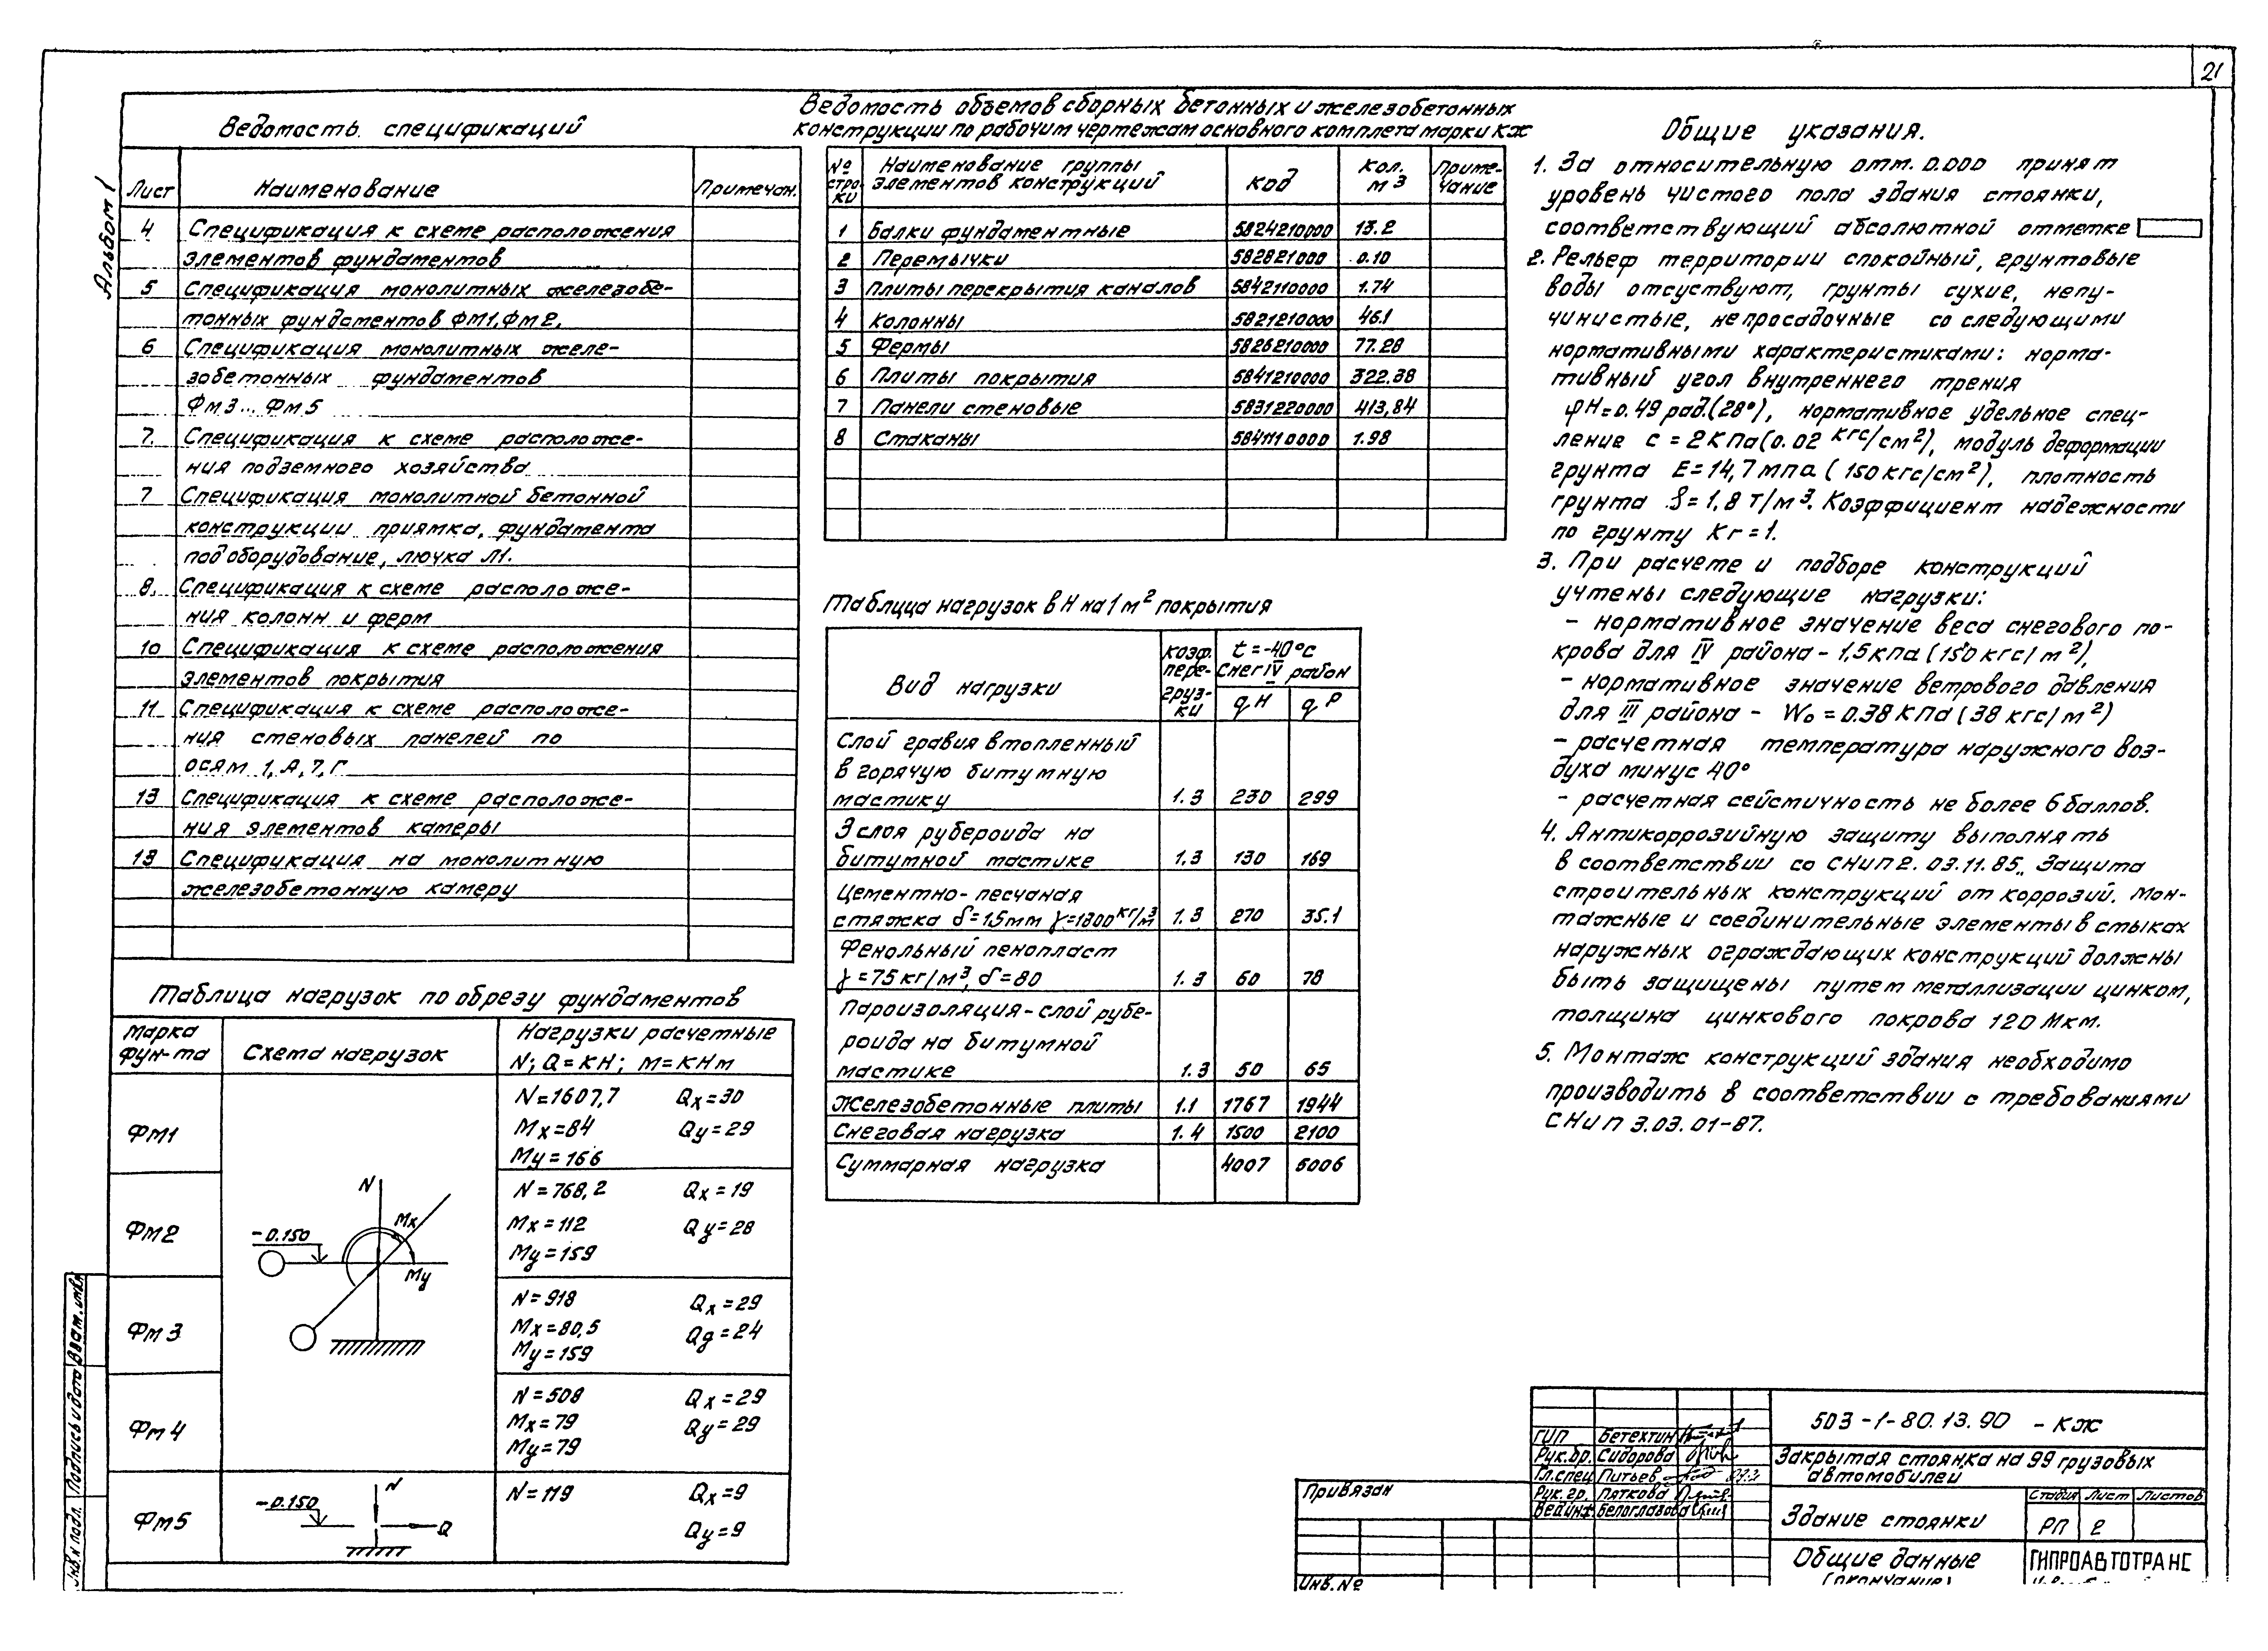 21
Альбом 1
Ведомость спецификаций
Лист Наименование Примечан.
4 Спецификация к схеме расположения
элементов фундаментов
5 Спецификация монолитных железобе-
тонных фундаментов ФМ1, ФМ2.
6 Спецификация монолитных желе-
зобетонных фундаментов
Фм3... Фм5
7. Спецификация к схеме расположе-
ния подземного хозяйства
7 Спецификация монолитной бетонной
конструкции приямка, фундамента
под оборудование, лючка Л1.
8. Спецификация к схеме расположе-
ния колонн и ферм
10 Спецификация к схеме расположения
элементов покрытия
11 Спецификация к схеме расположе-
ния стеновых панелей по
осям 1, А, 7, Г
13 Спецификация к схеме расположе-
ния элементов камеры
13 Спецификация на монолитную
железобетонную камеру
Таблица нагрузок по обрезу фундаментов
Марка фун-та Схема нагрузок Нагрузки расчетные
N; Q=КН; М=КНм
ФМ1 N=1607,7 Qx=30
Mx=84 Qy=29
My=166
Фм2 N=768,2 Qx=19
Mx=112 Qy=28
My=159
Фм3 N=918 Qx=29
Mx=80,5 Qy=24
My=159
Фм4 N=508 Qx=29
Mx=79 Qy=29
My=79
Фм5 N=119 Qx=9
Qy=9
N
Mx
-0.150
My
N
-0.150
Q
Ведомость объемов сборных бетонных и железобетонных
конструкции по рабочим чертежам основного комплета марки КЖ
№ стро- ки Наименование группы элементов конструкций код Кол. м3 Приме- чание
1 Балки фундаментные 5824210000 13.2
2 Перемычки 582821000 0.10
3 Плиты перекрытия каналов 5842110000 1.74
4 Колонны 5821210000 46.1
5 Фермы 5826210000 77.28
6 Плиты покрытия 5841210000 322.38
7 Панели стеновые 5831220000 413,84
8 Стаканы 5841110000 1.98
Таблица нагрузок в Н на 1 м2 покрытия
Вид нагрузки коэф. пере- груз- ки t=-40°с
Снег IV район
qН qР
Слой гравия втопленный
в горячую битумную
мастику 1.3 230 299
3 слоя рубероида на
битумной мастике 1.3 130 169
Цементно-песчаная
стяжка δ=1,5мм γ=1800кг/м3 1.3 270 35.1
Фенольный пенопласт
γ=75кг/м3, δ=80 1.3 60 78
Пароизоляция-слой рубе-
роида на битумной
мастике 1.3 50 65
Железобетонные плиты 1.1 1767 1944
Снеговая нагрузка 1.4 1500 2100
Суммарная нагрузка 4007 5006
Общие указания.
1. За относительную отм. 0.000 принят
уровень чистого пола здания стоянки,
соответствующий абсолютной отметке
2. Рельеф территории спокойный, грунтовые
воды отсуствуют, грунты сухие, непу-
чинистые, непросадочные со следующими
нормативными характеристиками: норма-
тивный угол внутреннего трения
φН=0.49 рад.(28°), нормативное удельное сцеп-
ление с=2КПа(0.02 кгс/см2), модуль деформации
грунта Е=14,7мпа (150кгс/см2), плотность
грунта ρ=1,8 т/м3. Коэффициент надежности
по грунту Кг=1.
3. При расчете и подборе конструкций
учтены следующие нагрузки:
- нормативное значение веса снегового по-
крова для IV района-1,5кпа (150кгс/м2),
- нормативное значение ветрового давления
для III район - Wo=0.38КПа (38кгс/м2)
- расчетная температура наружного воз-
духа минус 40°
- расчетная сейсмичность не более 6 баллов.
4. Антикоррозийную защиту выполнять
в соответствии со СНиП 2.03.11.85„ Защита
строительных конструкций от коррозий. Мон-
тажные и соединительные элементы в стыках
наружных ограждающих конструкций должны
быть защищены путем металлизации цинком,
толщина цинкового покрова 120 Мкм.
5. Монтаж конструкций здания необходимо
производить в соответствии с требованиями
СНиП 3.03.01-87.
503-1-80.13.90 - КЖ
Закрытая стоянка на 99 грузовых
автомобилей
Здание стоянки
Стадия Лист Листов
РП 2
Общие данные
(окончание)
ГИПРОАВТОТРАНС
ГИП Бетехтин
Рук.бр. Сидорова
Гл.спец Питьев
Рук.гр. Пяткова
Вед.инж Белоглазова
Привязан
Инв.№
Инв.№ подл. Подпись и дата Взам.инв.№